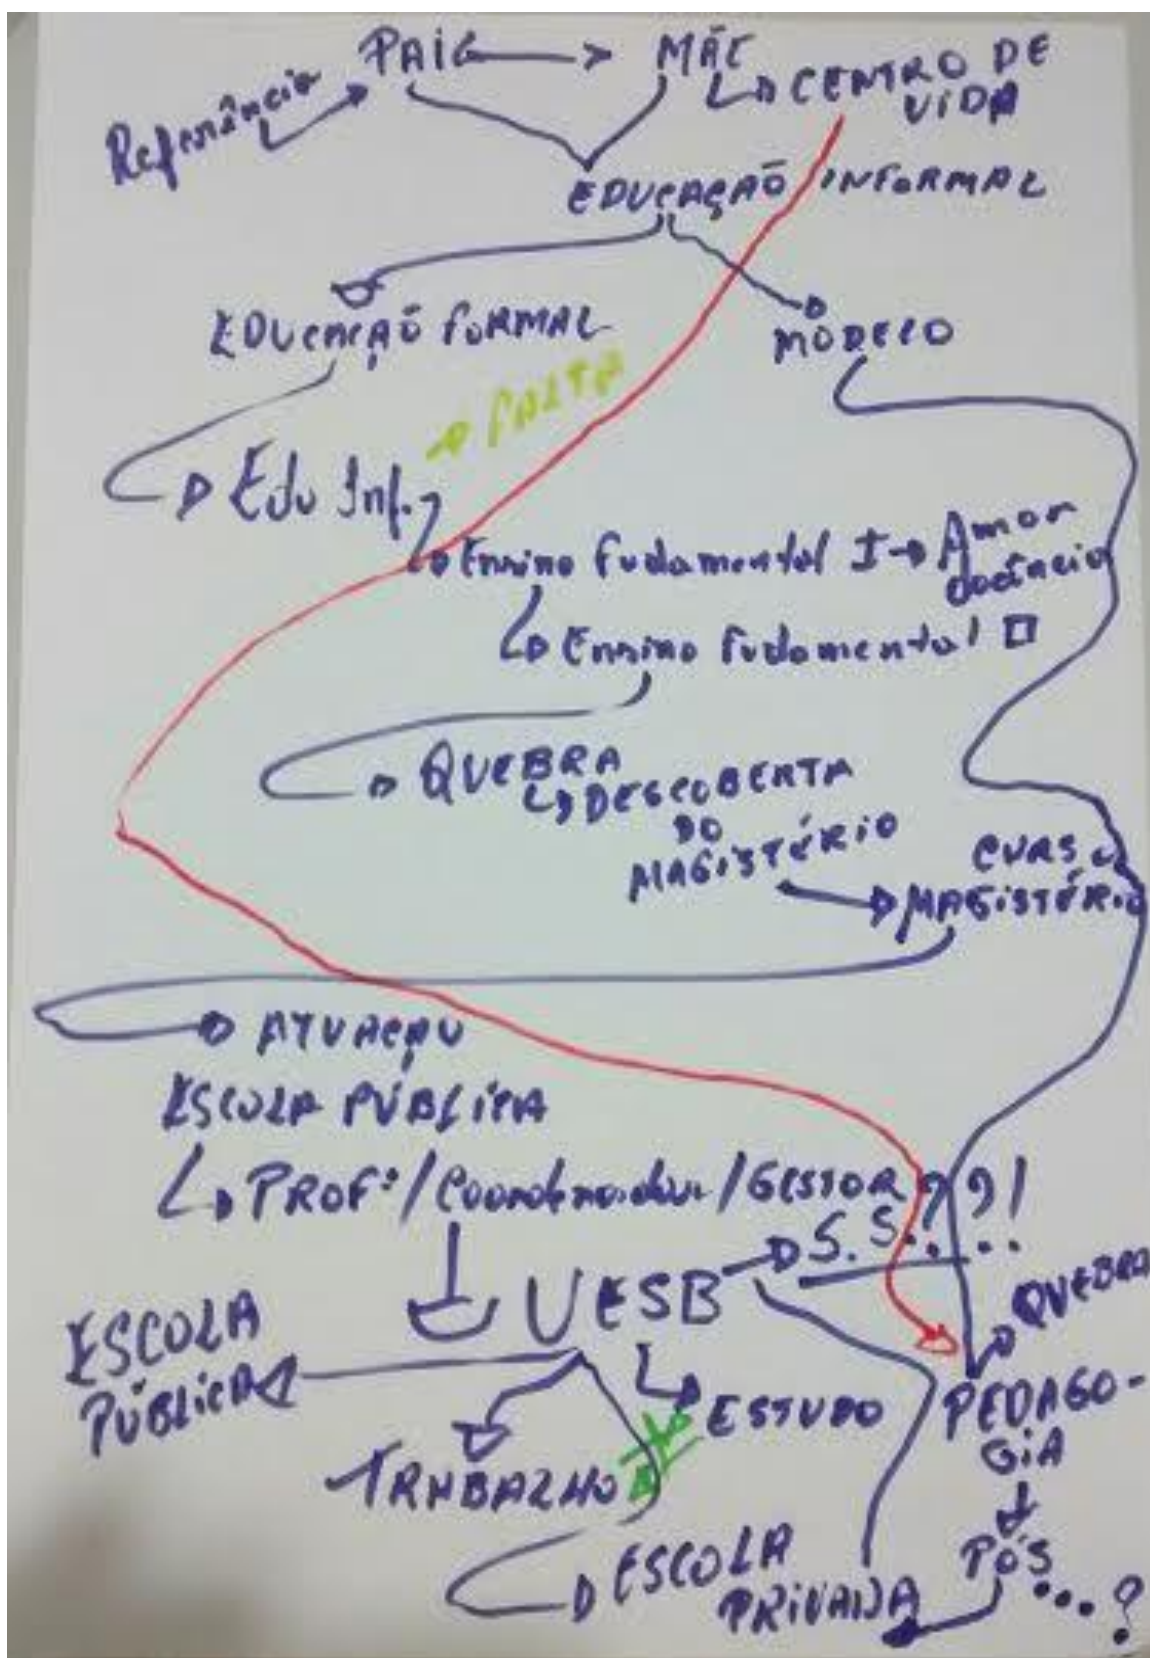 PAI
MÃE
CENTRO DE
VIDA
Referência
EDUCAÇÃO INFORMAL
EDUCAÇÃO FORMAL
MODELO
FALTA
Edu Inf.
Ensino fudamental I
Amor
docência
Ensino fudamental II
QUEBRA
DESCOBERTA
DO
MAGISTÉRIO
CURSO
MAGISTÉRIO
ATUAÇÃO
ESCOLA PÚBLICA
PROFº/Coordenador/GESTOR
S.S.
UESB
QUEBRA
ESCOLA
PÚBLICA
ESTUDO
PEDAGO-
GIA
TRABALHO
ESCOLA
PRIVADA
PÓS...?